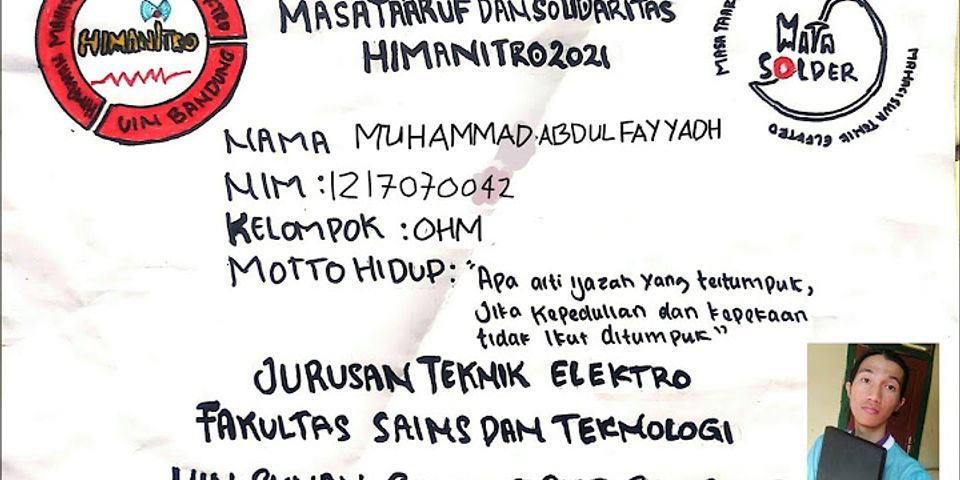 MASA TAARUF DAN SOLIDARITAS
HIMANITRO 2021
HIMANITRO
UIN BANDUNG
MATA
SOLDER
MAHASISWA TEKNIK ELEKTRO
NAMA MUHAMMAD ABDUL FAYYADH
NIM : 1217070042
KELOMPOK : OHM
MOTTO HIDUP : "Apa arti ijazah yang tertumpuk,
Jika Kepedulian dan kepekaan
tidak Ikut ditumpuk"
JURUSAN TEKNIK ELEKTRO
FAKULTAS SAINS DAN TEKNOLOGI